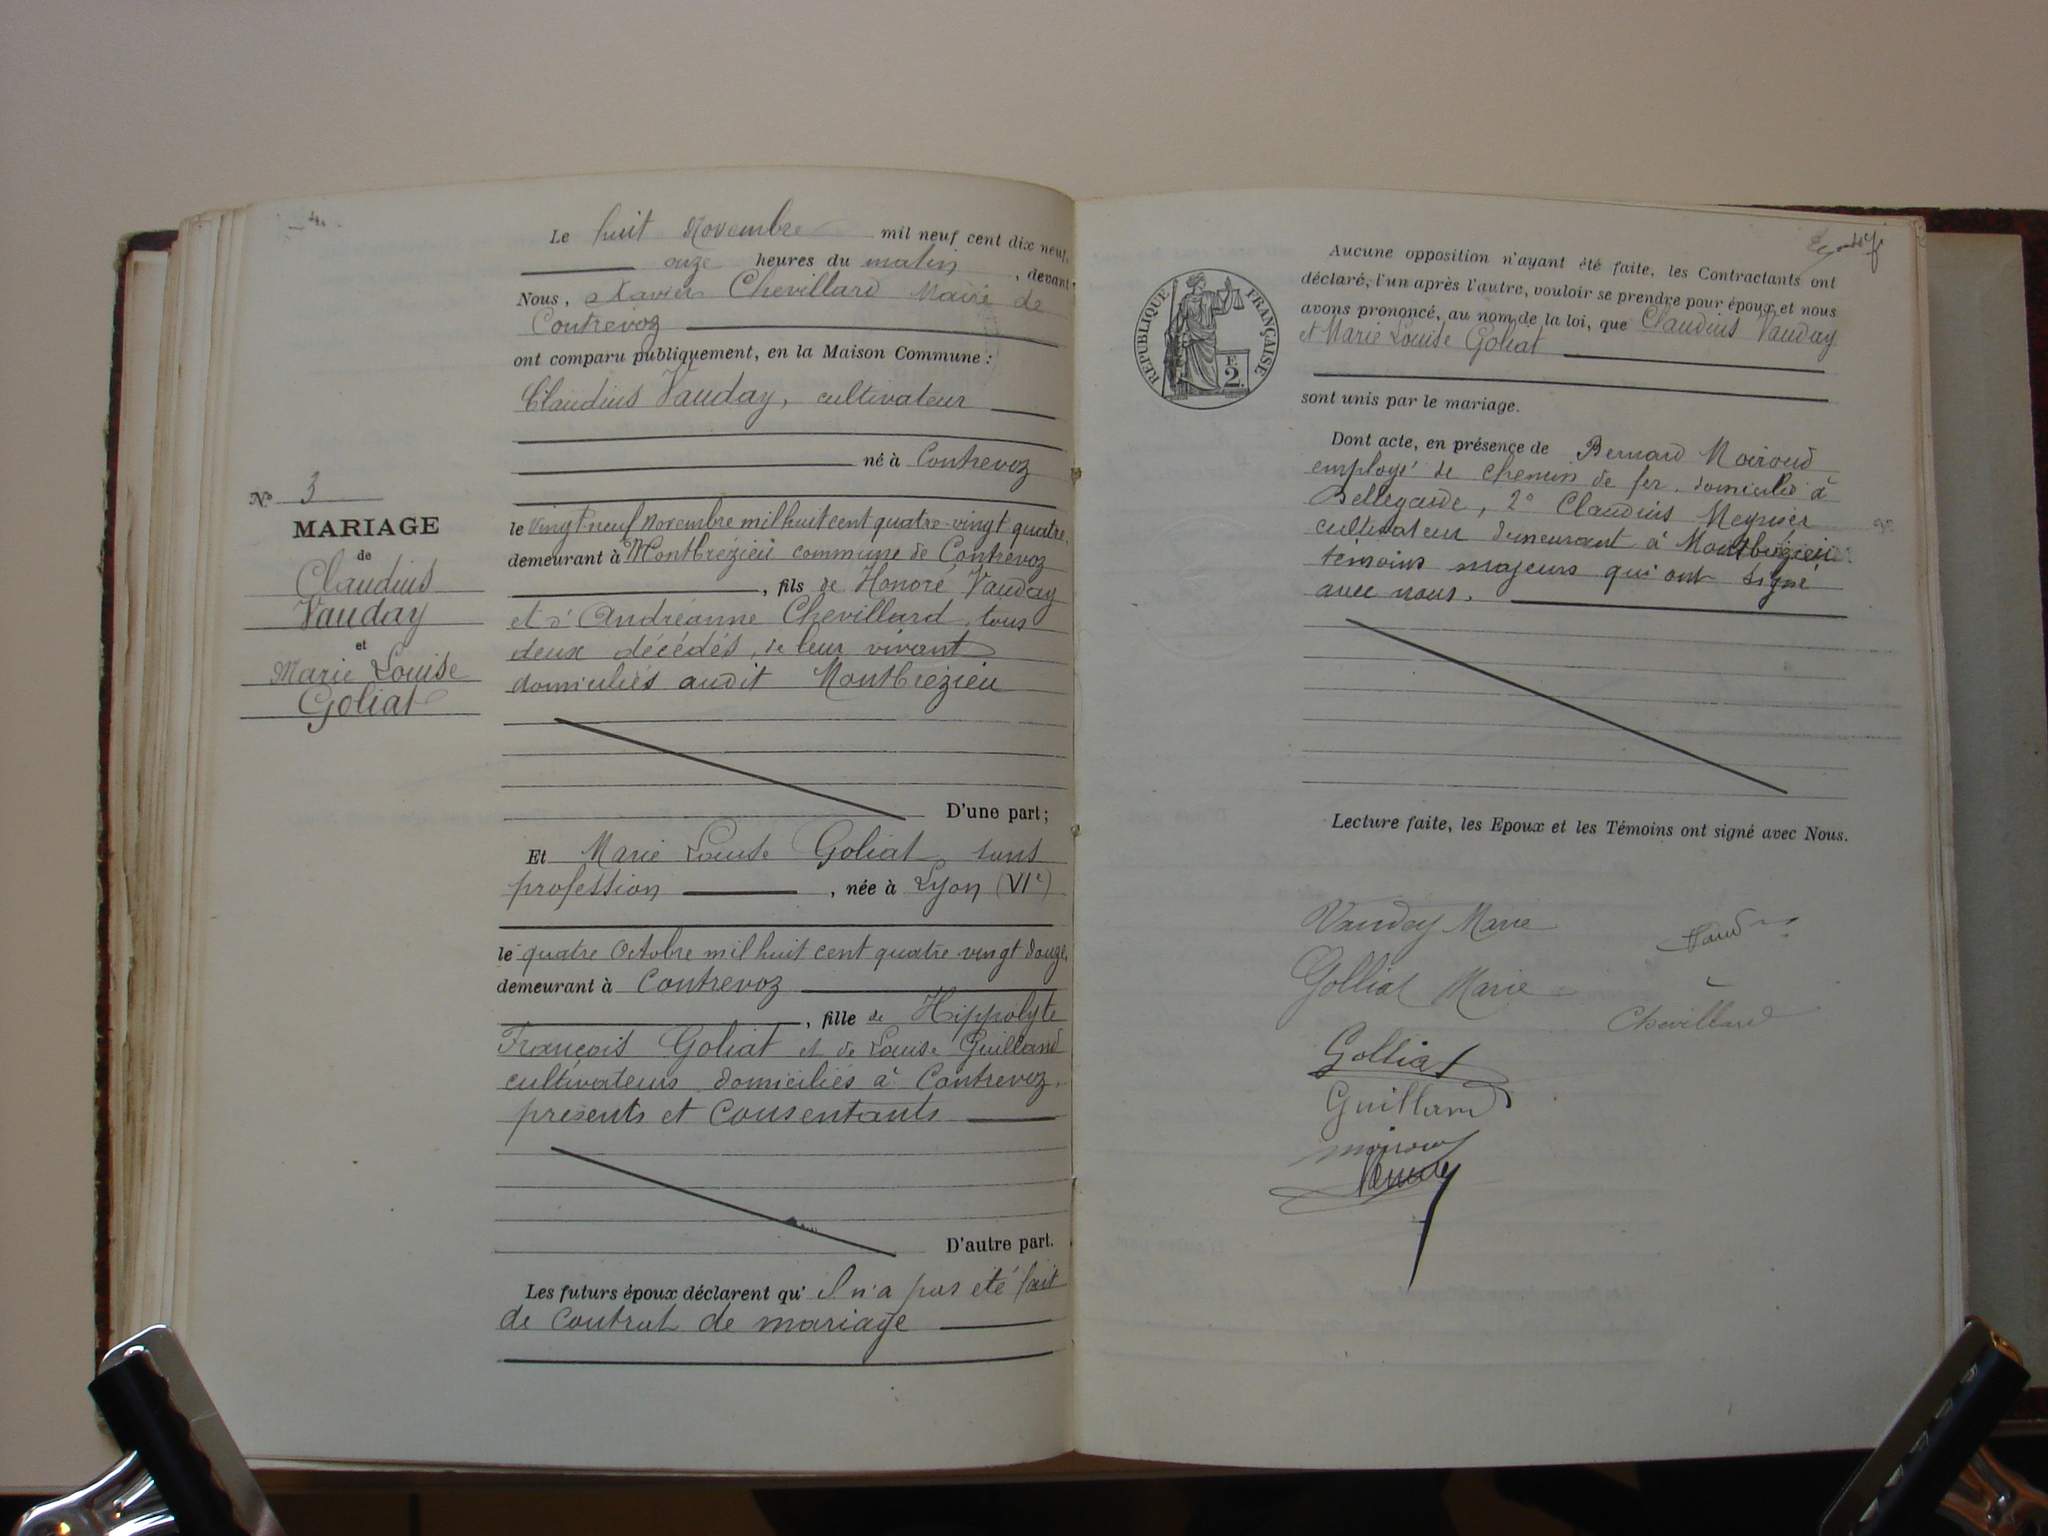 Nº 3
MARIAGE
de
Claudius
Vauday
et
Marie Louise
Goliat
Le huit Novembre mil neuf cent dix neuf,
onze heures du matin, devant
Nous, Xavier Chevillard Maire de
Contrevoz
ont comparu publiquement, en la Maison Commune :
Claudius Vauday, cultivateur
né à Contrevoz
le vingt neuf novembre mil huit cent quatre-vingt quatre,
demeurant à Montbrézieu commune de Contrevoz
, fils de Honoré Vauday
et d'Andréanne Chevillard, tous
deux décédés, de leur vivant
domiciliés audit Montbrézieu
D'une part ;
Et Marie Louise Goliat, sans
profession, née à Lyon (VIe)
le quatre Octobre mil huit cent quatre vingt douze,
demeurant à Contrevoz
, fille de Hippolyte
François Goliat et de Louise Guilland
cultivateurs domiciliés à Contrevoz,
présents et consentants
D'autre part.
Les futurs époux déclarent qu'il n'a pas été fait
de contrat de mariage
REPUBLIQUE FRANÇAISE
E
2
Aucune opposition n'ayant été faite, les Contractants ont
déclaré, l'un après l'autre, vouloir se prendre pour époux et nous
avons prononcé, au nom de la loi, que Claudius Vauday
et Marie Louise Goliat
sont unis par le mariage.
Dont acte, en présence de Bernard Moiroud
employé de chemin de fer, domicilié à
Bellegarde, 2º Claudius Meynier
cultivateur demeurant à Montbrézieu
témoins majeurs qui ont signé
avec nous.
Lecture faite, les Epoux et les Témoins ont signé avec Nous.
Vauday Marie
Golliat Marie
Chevillard
Golliat
Guilland
Moiroud